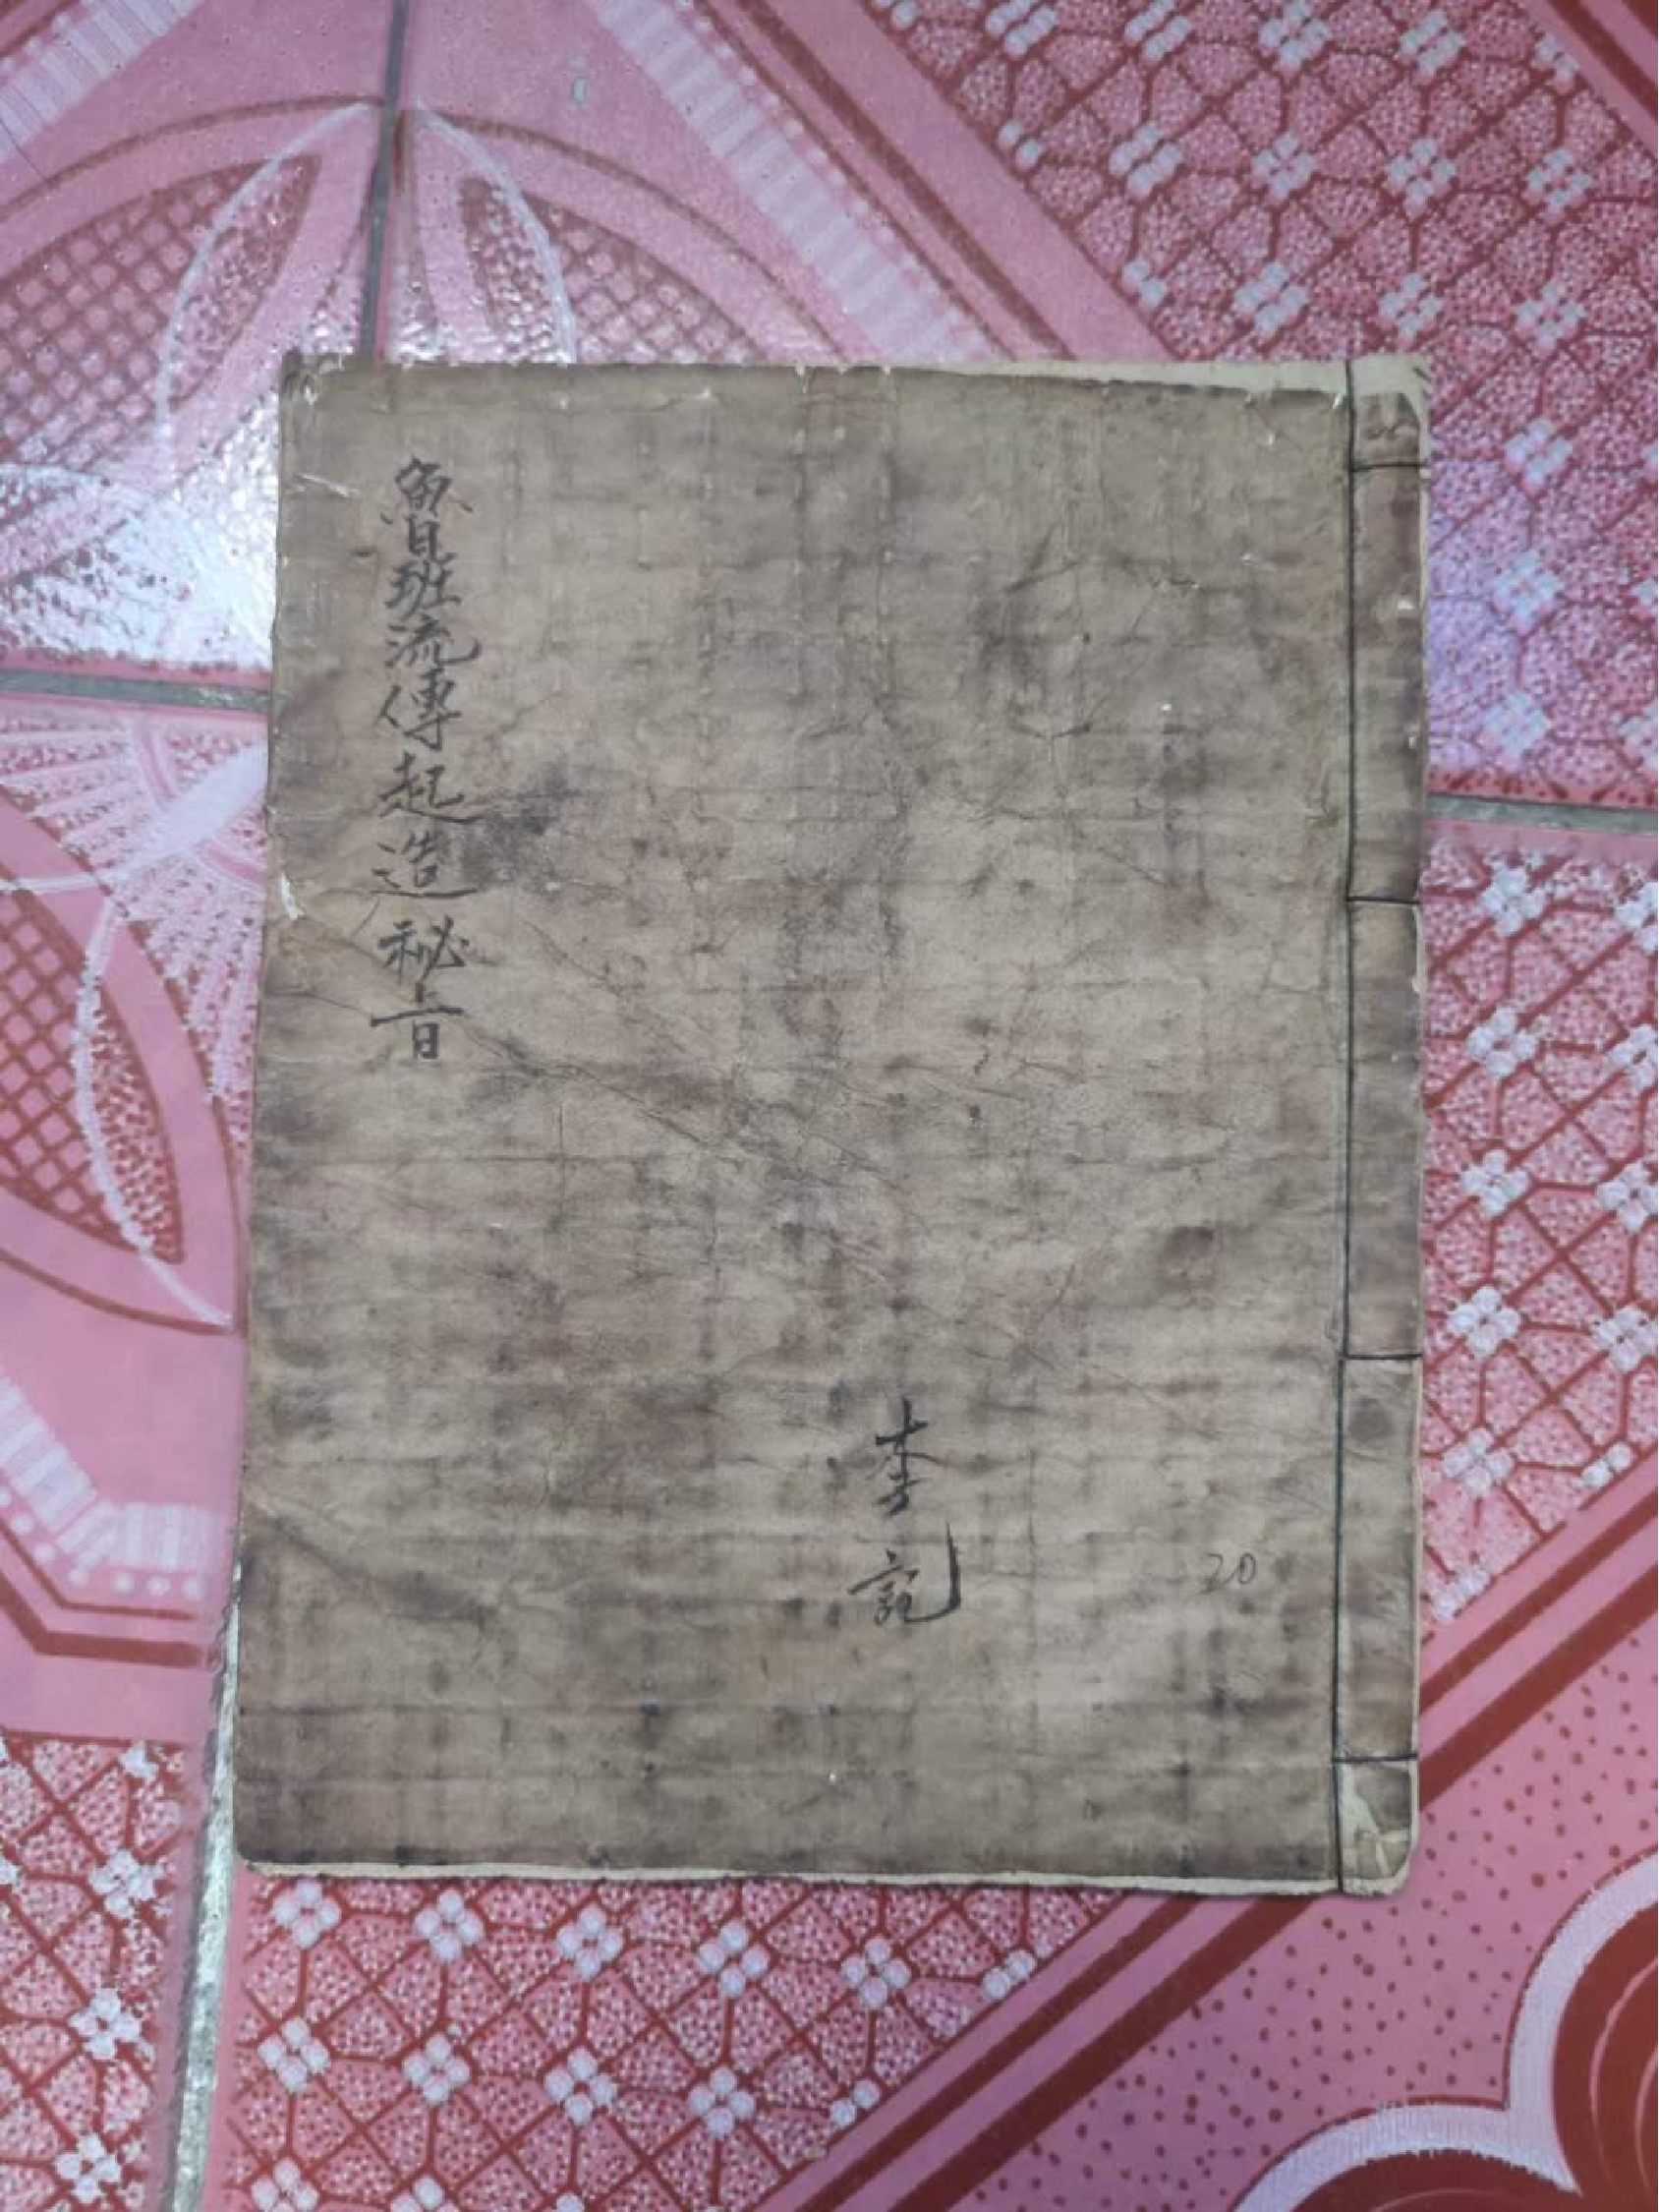 魯班流傳起造秘旨
李記
20